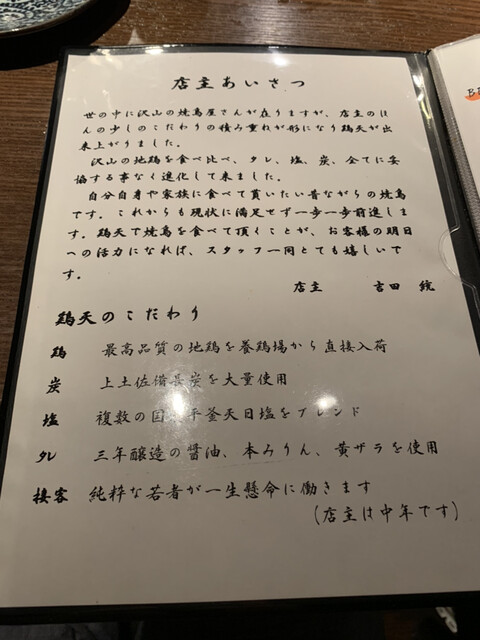 店主あいさつ
世の中に沢山の焼鳥屋さんが在りますが、店主のほ
んの少しのこだわりの積み重ねが形になり鶏天が出
来上がりました。
沢山の地鶏を食べ比べ、タレ、塩、炭、全てに妥
協する事なく進化して来ました。
自分自身や家族に食べて貰いたい昔ながらの焼鳥
です。これからも現状に満足せず一歩一歩前進しま
す。鶏天で焼鳥を食べて頂くことが、お客様の明日
への活力になれば、スタッフ一同とても嬉しいで
す。
店主 吉田
鶏天のこだわり
鶏 最高品質の地鶏を養鶏場から直接入荷
炭 上土佐備長炭を大量使用
塩 複数の国産平釜天日塩をブレンド
タレ 三年醸造の醤油、本みりん、黄ザラを使用
接客 純粋な若者が一生懸命に働きます
(店主は中年です)